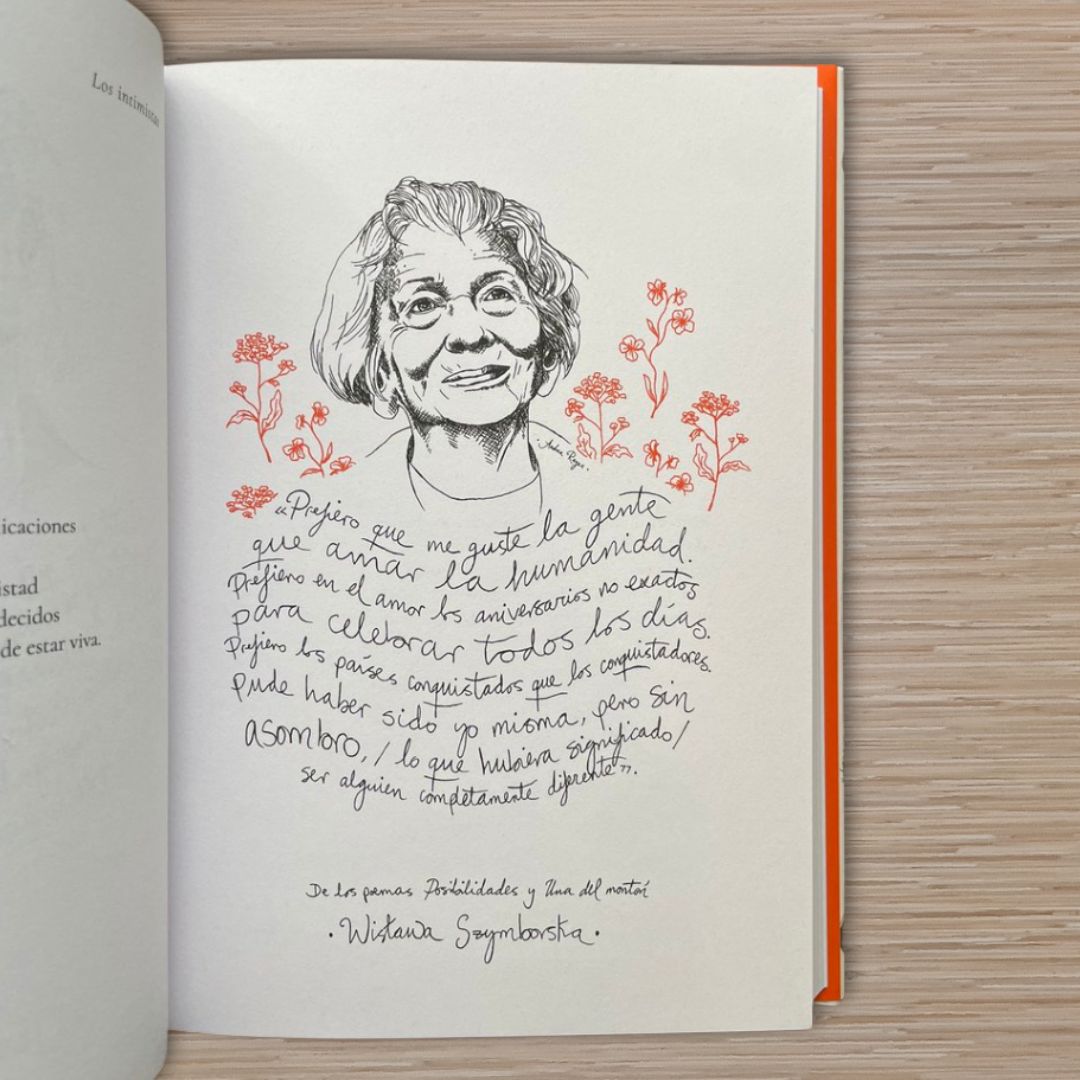 Los intimistas
icaciones
istad
decidos
de estar viva.
Andrea Reyes.
«Prefiero que me guste la gente
que amar la humanidad.
Prefiero en el amor los aniversarios no exactos
para celebrar todos los días.
Prefiero los países conquistados que los conquistadores.
Pude haber sido yo misma, pero sin
asombro, / lo que hubiera significado /
ser alguien completamente diferente».
De los poemas Posibilidades y Una del montón
· Wisława Szymborska ·